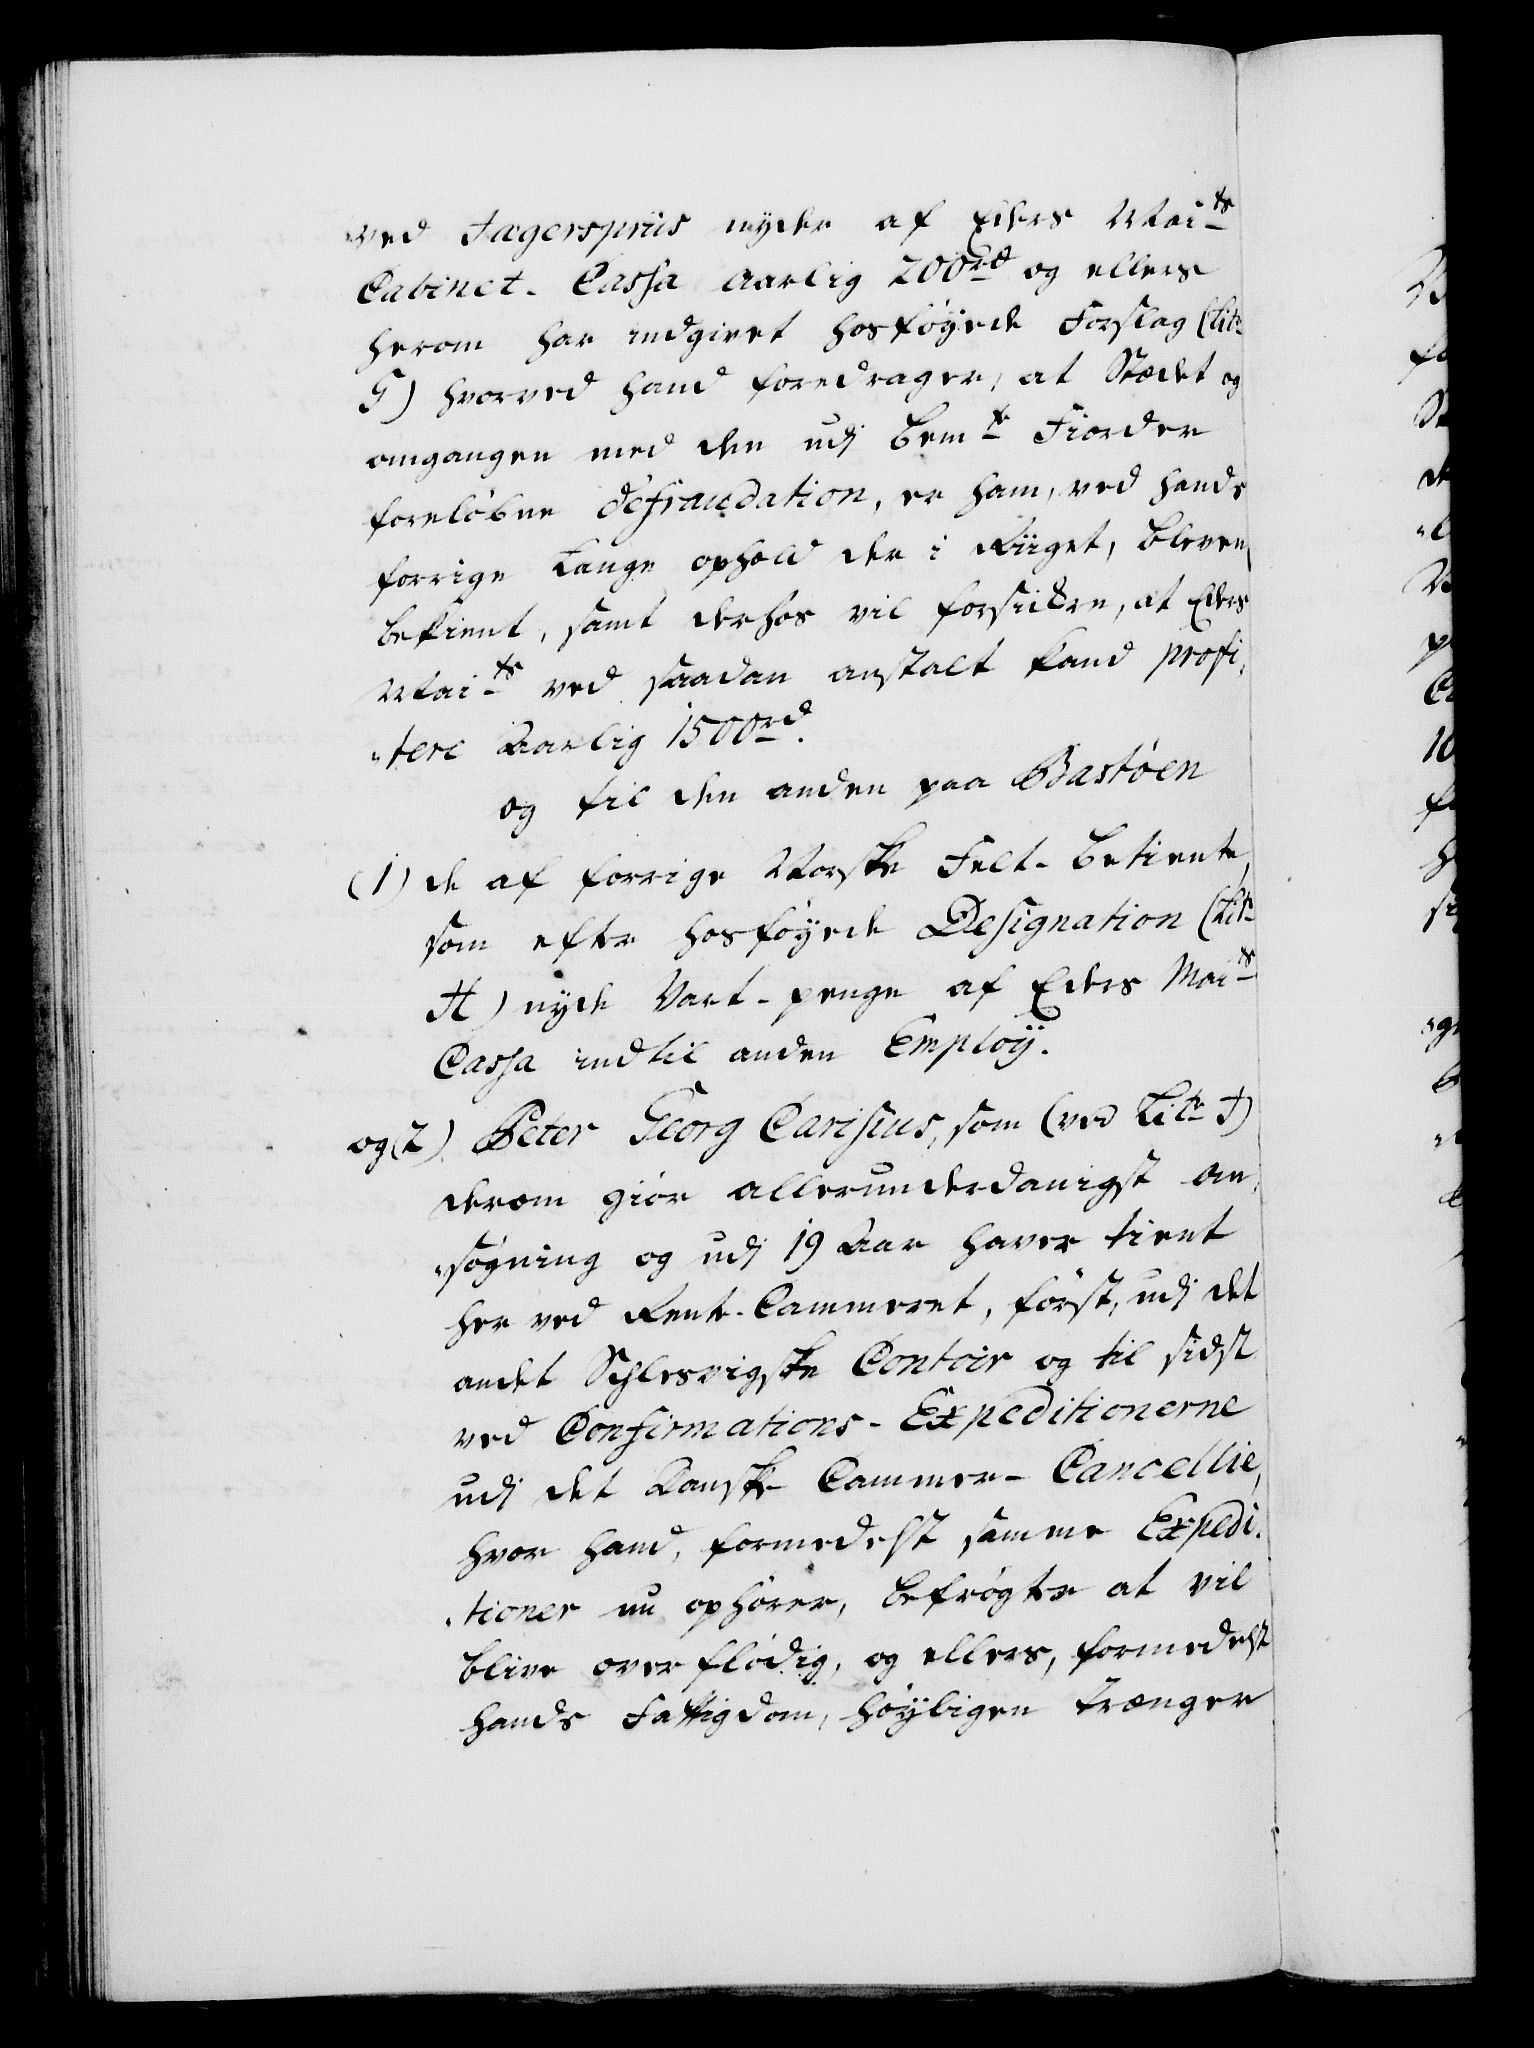 ved Jægerspriis nyder af Eders Mai<sup>ts</sup>
Cabinet-Cassa aarlig 200<sup>rd</sup> og ellers
herom har indgivet hosføyede Forslag (Lit<sup>r</sup>
G) hvorved hand foredrager, at Stædet og
omgangen med den udj bem<sup>te</sup> Fiorder
foreløbne defraudation, er ham, ved hands
forrige Lange ophold der i Riiget, bleven
bekient, samt derhos vil forsickre, at Eders
Mai<sup>ts</sup> ved saadan anstalt kand profi„
„tere Aarlig 1500<sup>rd</sup>.
og til den anden paa Bastøen
(1) de af forrige Norske Felt-betiente,
som efter hosføyede Designation (Lit<sup>r</sup>
H) nyde Vart-penge af Eders Mai<sup>ts</sup>
Cassa indtil anden Employ.
og (2) Peter Georg Carisius, som (ved Lit<sup>r</sup> J)
derom giør allerunderdanigst an„
„søgning og udj 19 Aar haver tient
her ved Rente-Cammeret, først, udj det
andet Schlesvigske Contoir og til sidst
ved Confirmations-Expeditionerne
udj det Danske Cammer-Cancellie,
hvor hand, formedelst samme Expedi„
„tioner nu ophører, befrøgter at vil
blive overflødig, og ellers, formedelst
hands Fattigdom, høyligen trænger